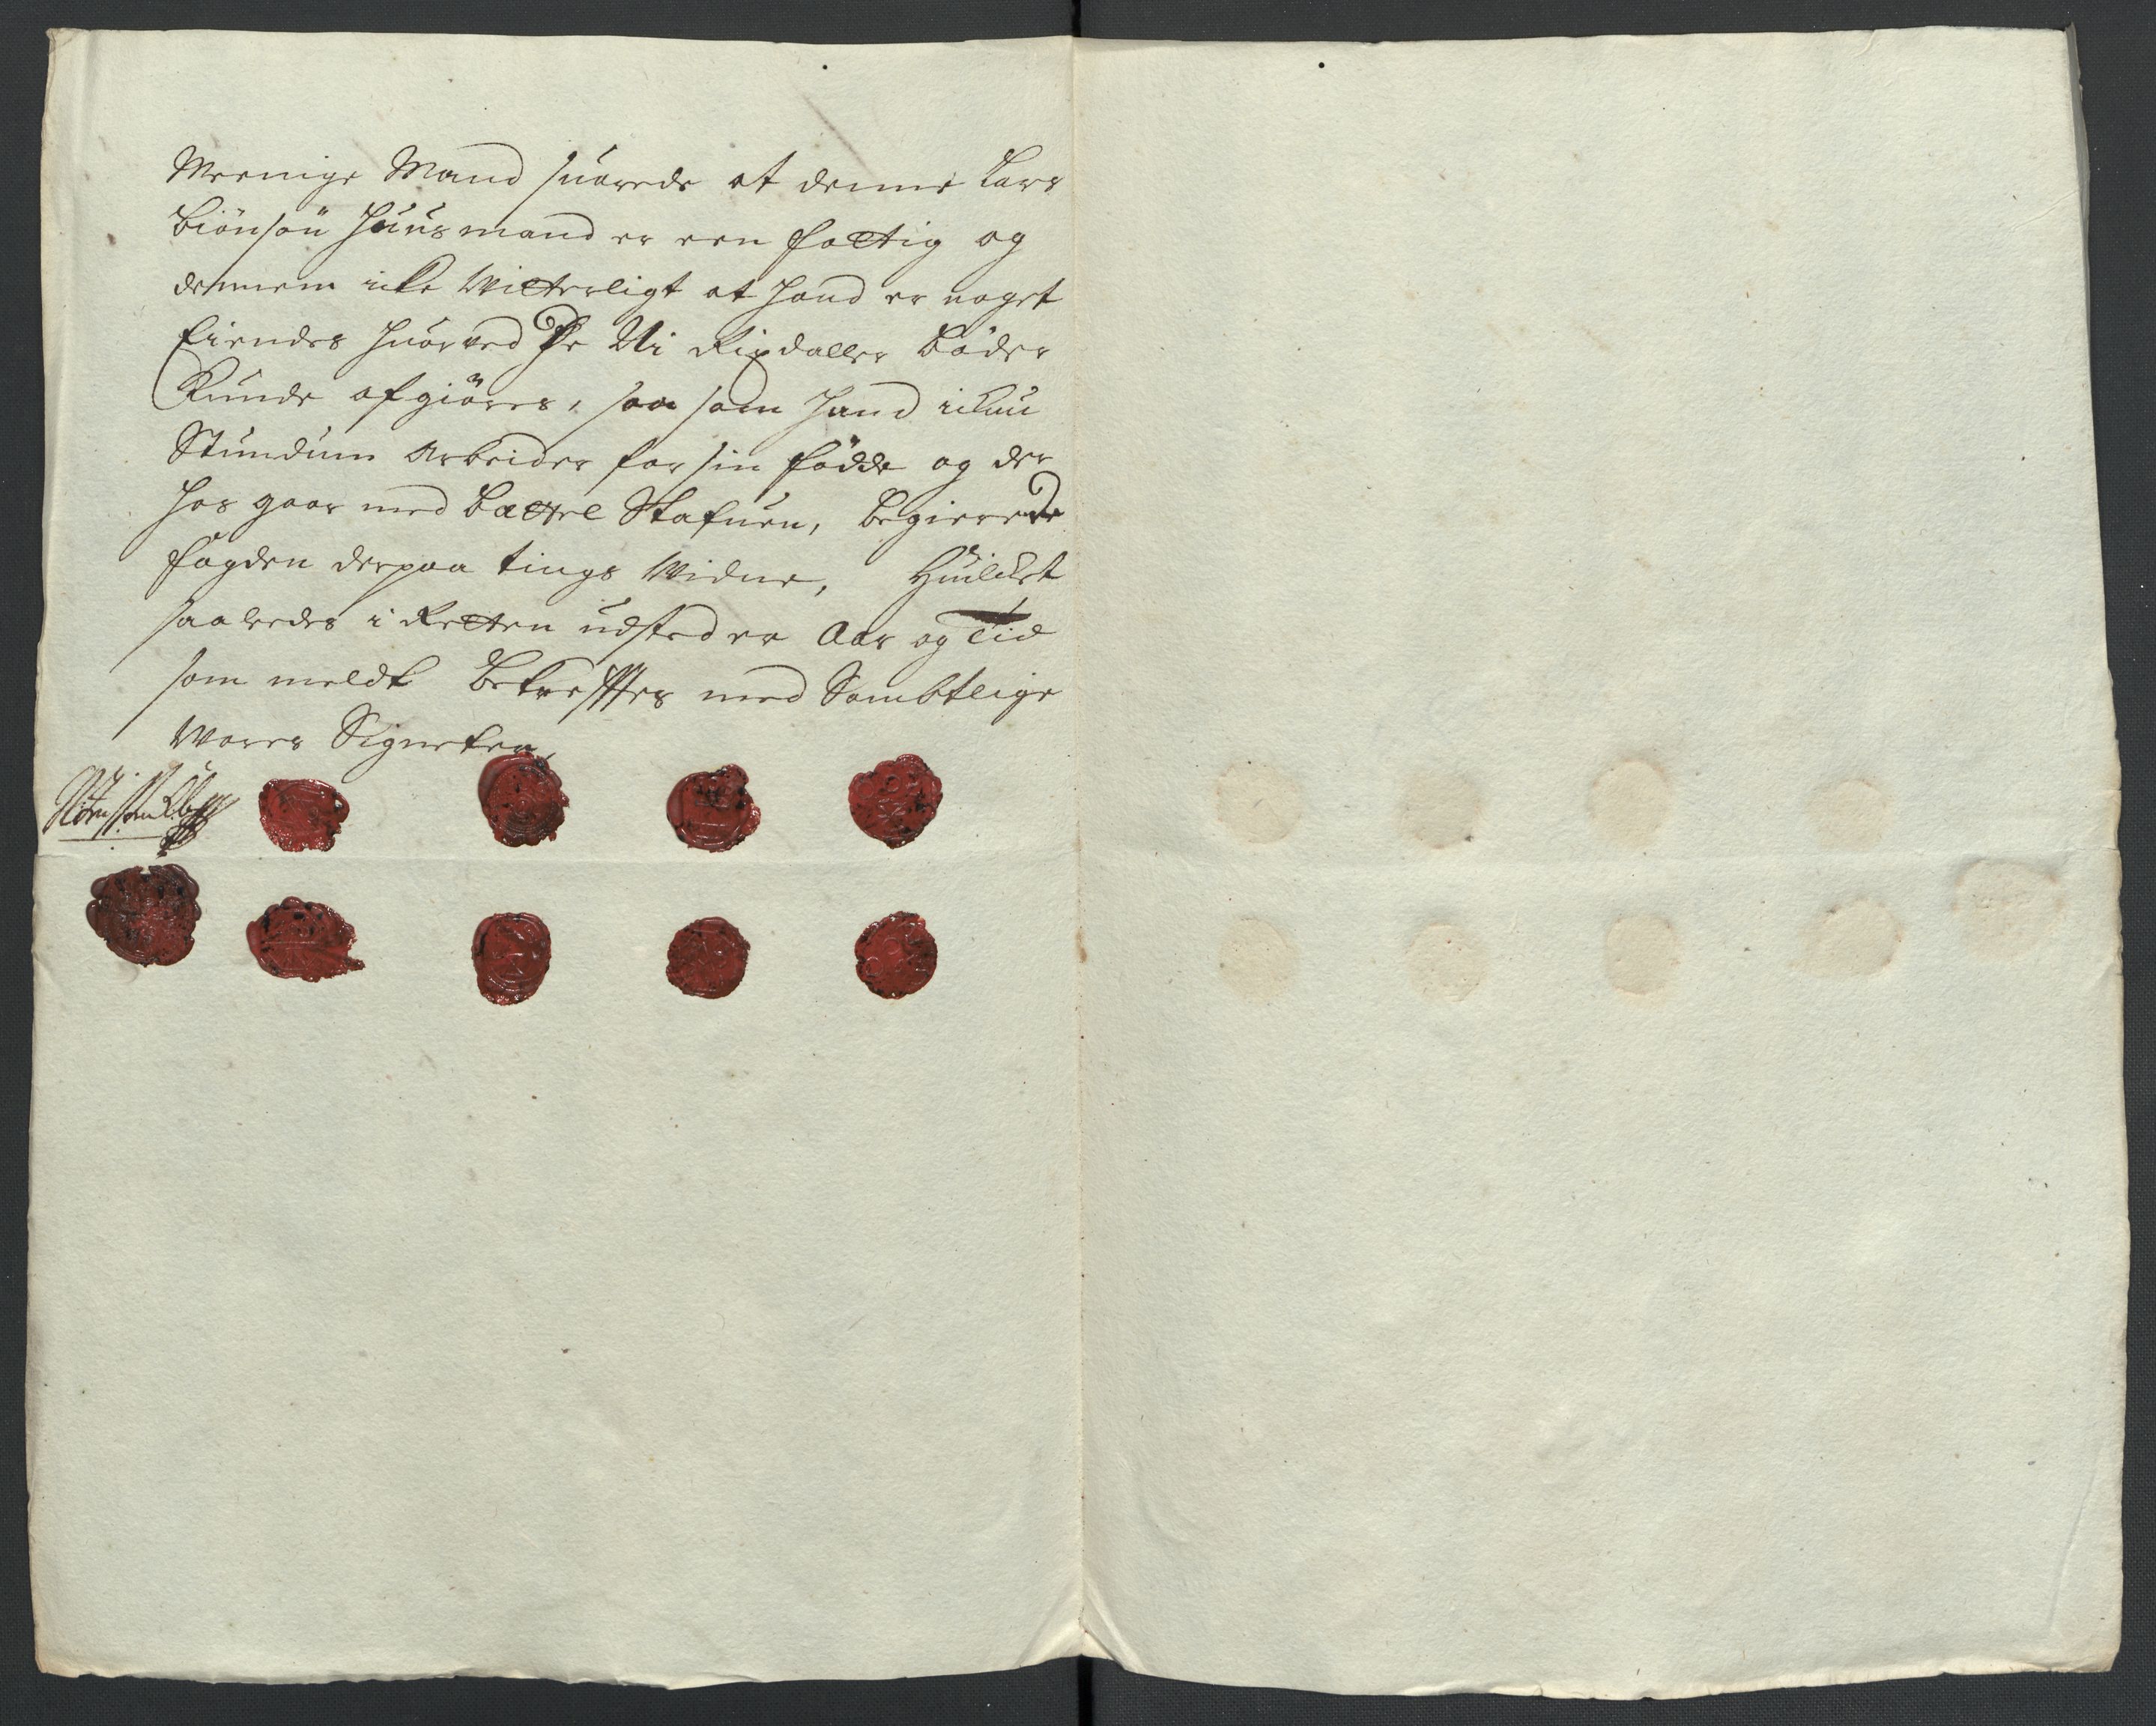 Meenige Mand suarede at denne Lars
Biönsön Huusmand er een fattig og
dennem icke Witterligt at hand er noget
Eiendes huorved De Ni Rixdaller Böder
Kunde afgiöres, saa som hand ickun
Stundum Arbeider for sin födde og der
hos gaar med Bettel Stafuen, Begierede
fogden derpaa tings Widne, Huilcket
saaledes i Retten udsted er Aar og Tid
som meldt Bekreffter med Sambtlige
Wores Signeter,